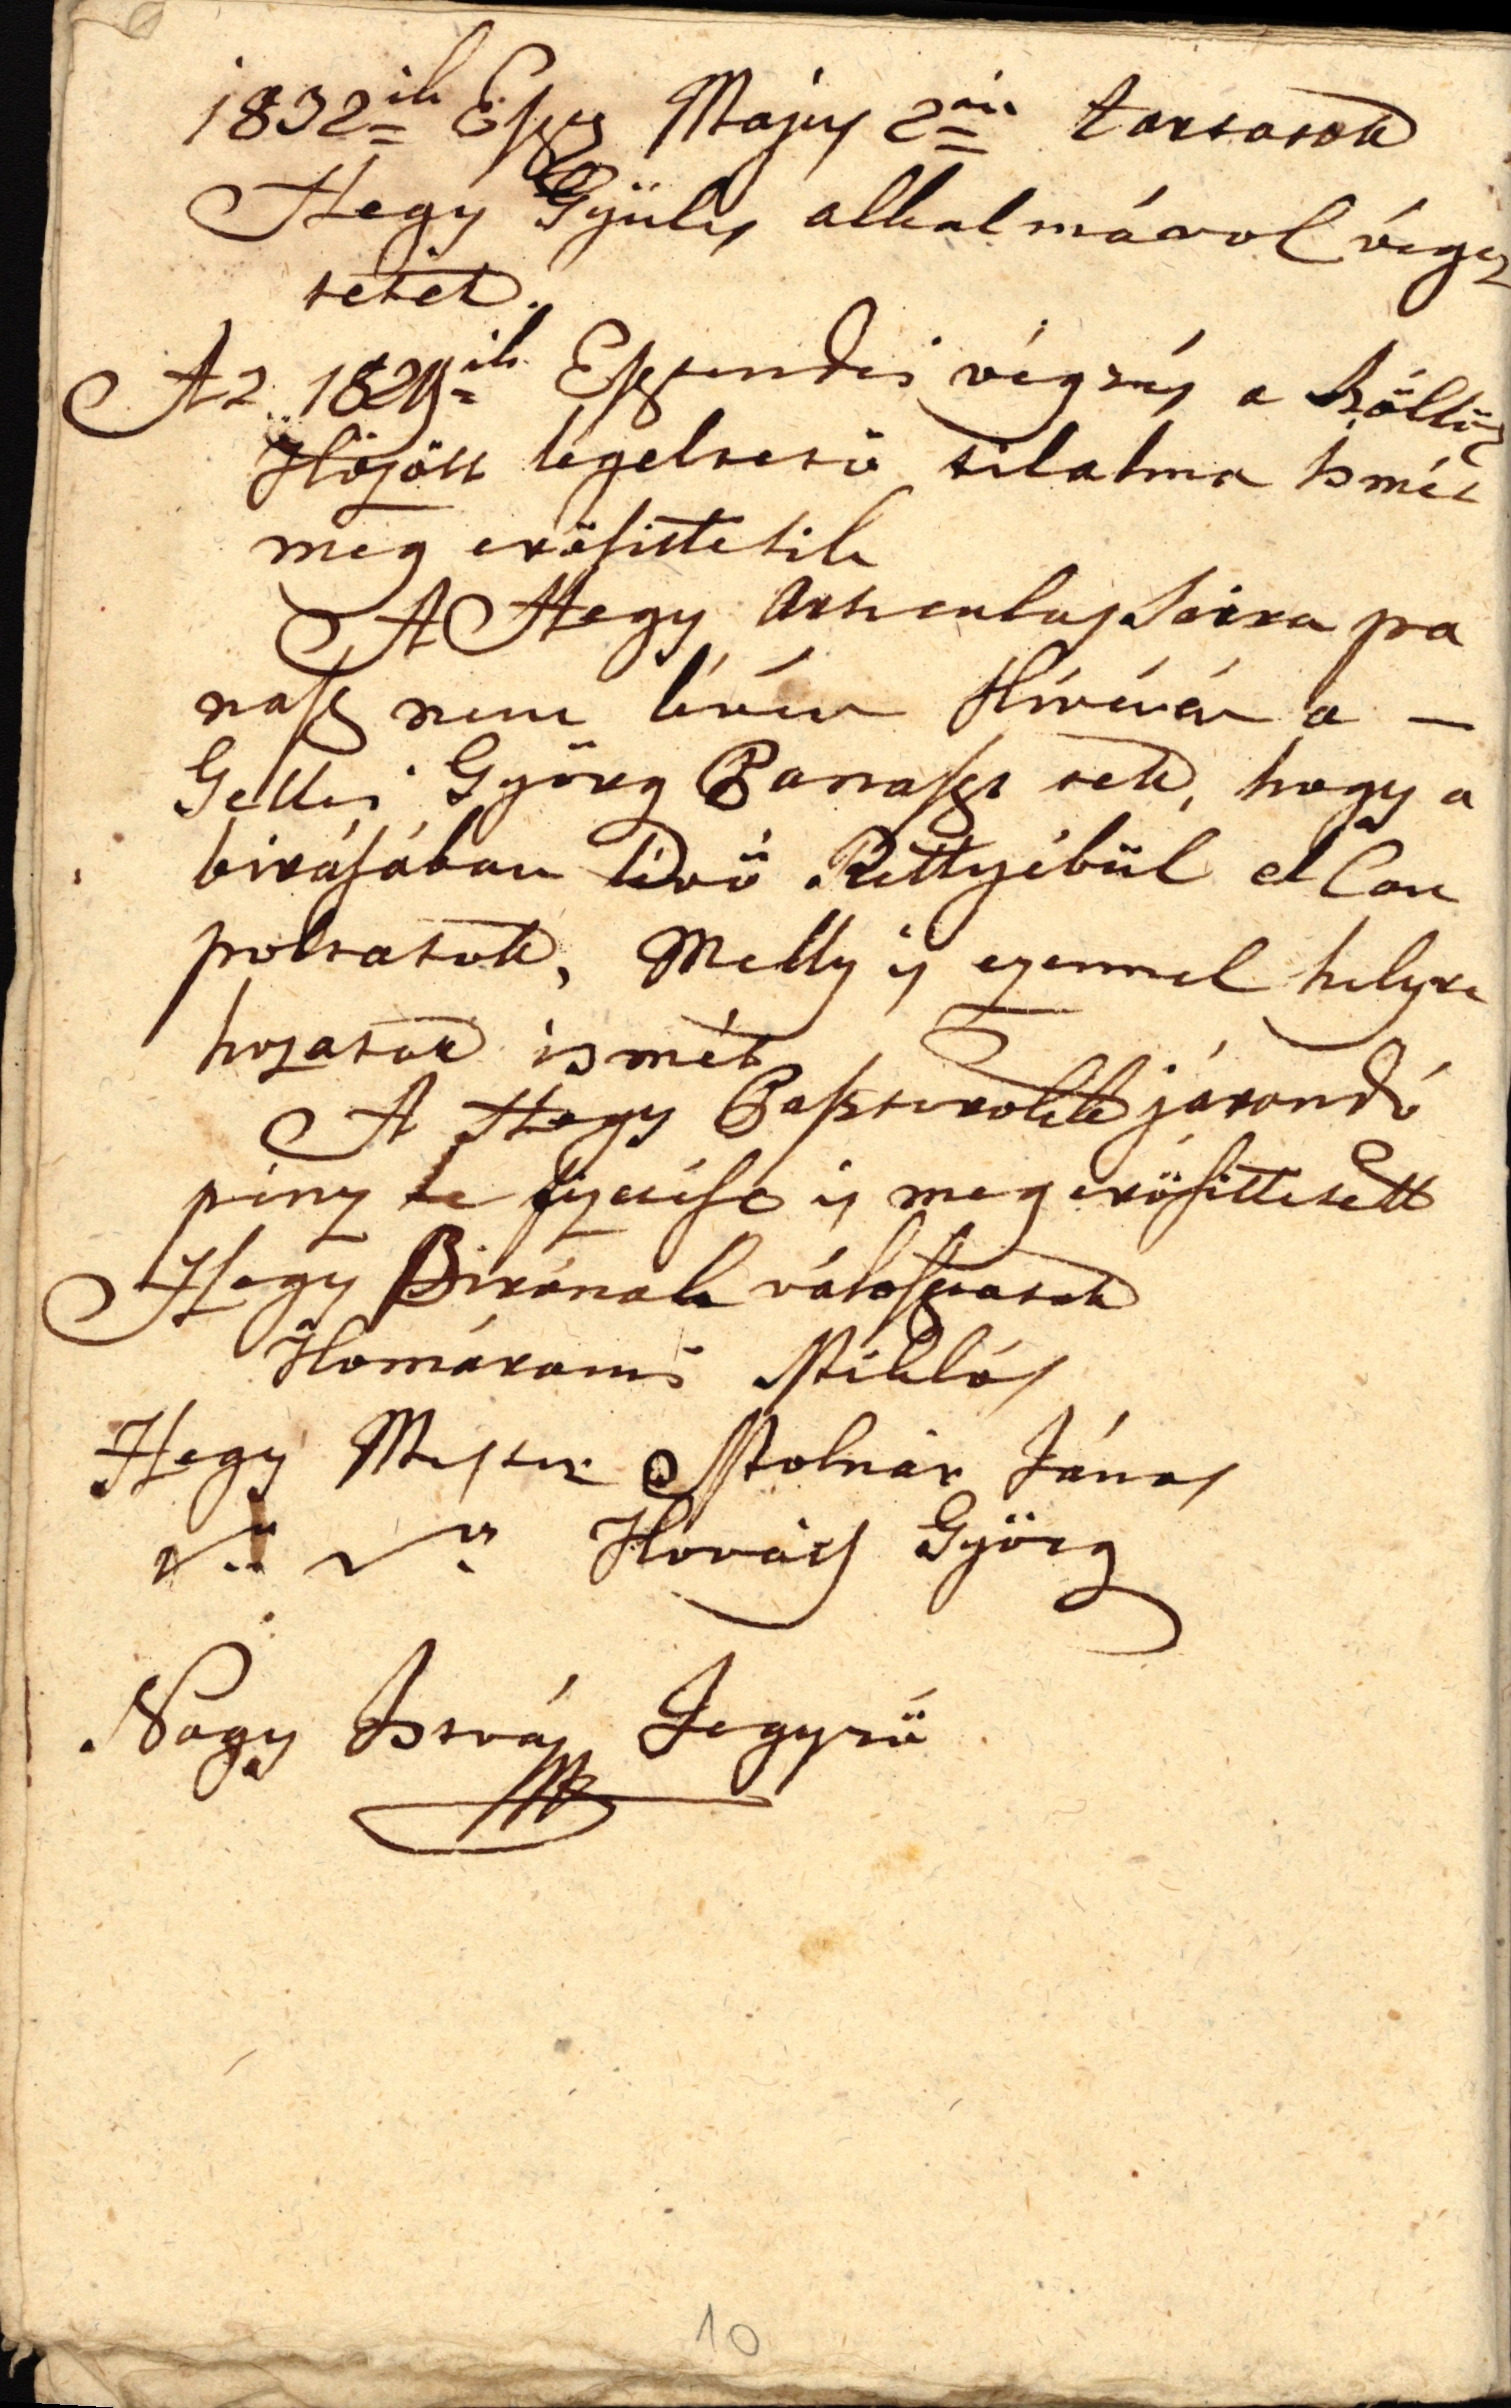 1832=ik Eszt Majus 2=án tartatott
Hegy Gyülés alkalmával végez
tetett.
Az 1829=ik Esztendei végzés a Szöllök
Között legeltetö tilalma Ismét
meg erösittetik
A Hegy Articulussaira pa
nasz nem lévén Kivéván a —
Gellei György Panaszt tett, hogy a
birásában lévö Réttyébül el Can
poltatott, Melly is ezennel helyre
hozatott ismét
A Hegy Pasztorokk járandó
pénz be fizetése is meg erösittetett
Hegy Birának választatott
Komáromi Miklós
Hegy Mester Molnár János
Kováts György
Nagy Istvá Jegyzö
10